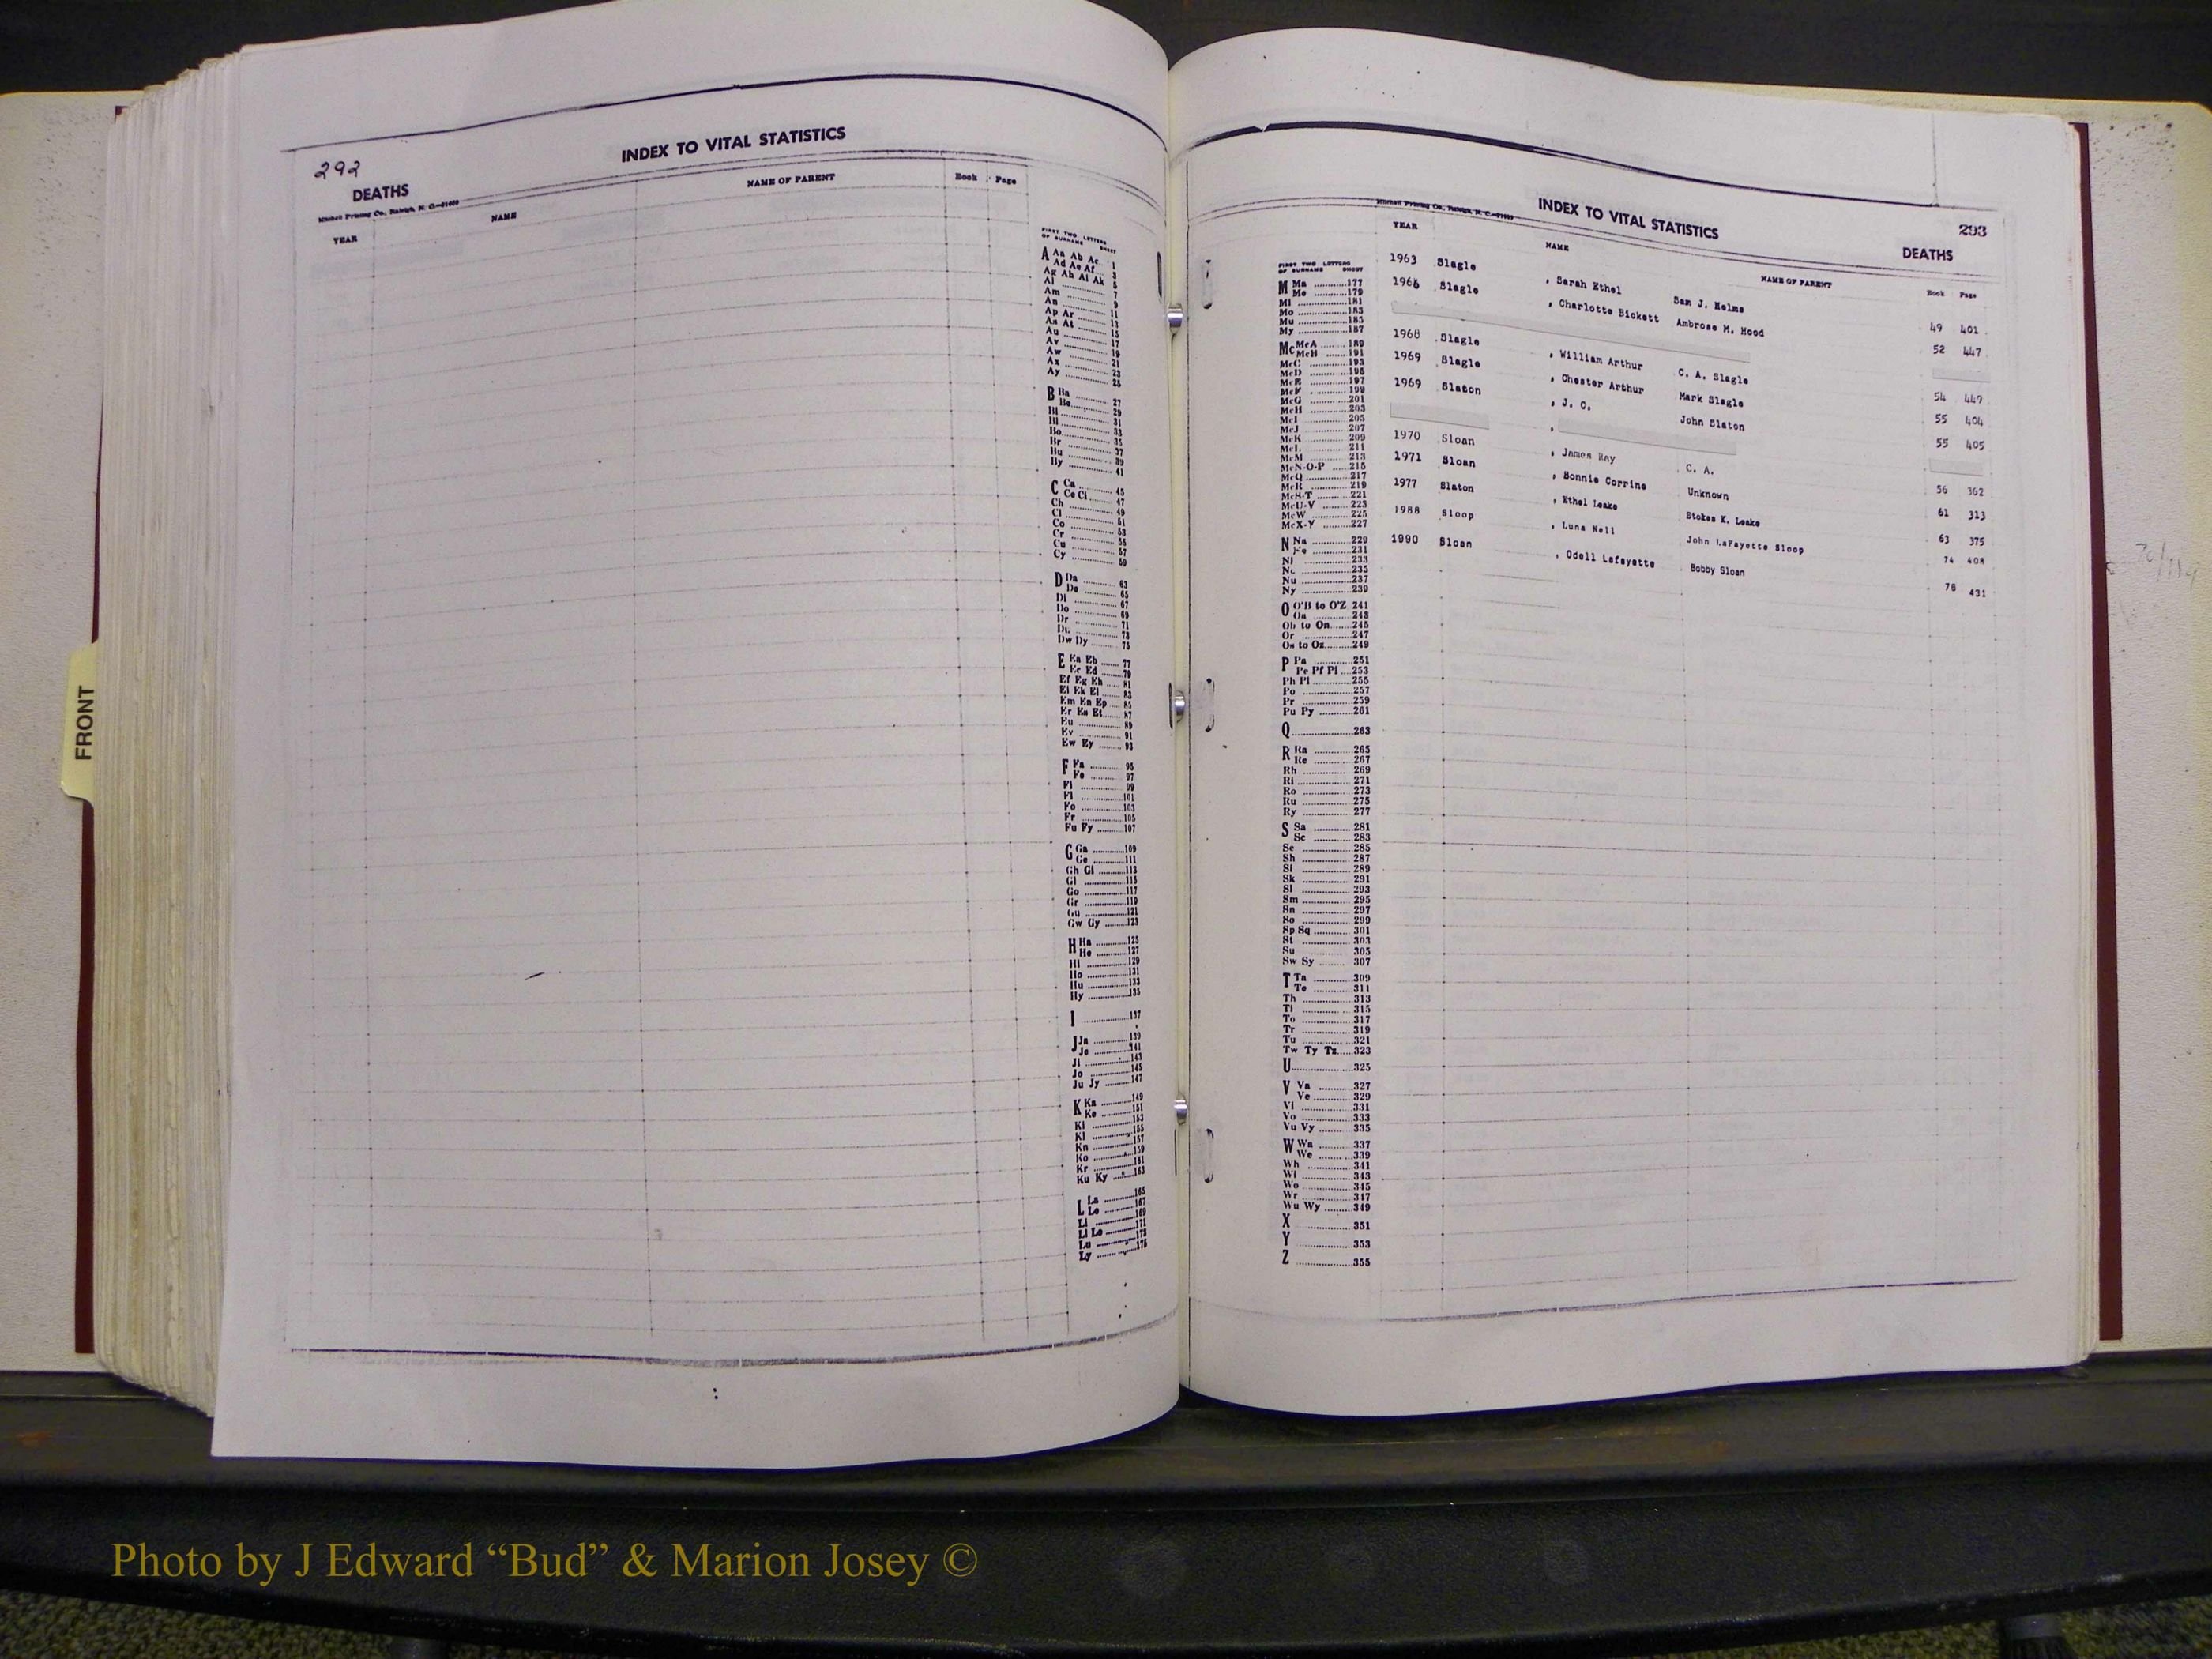 292
INDEX TO VITAL STATISTICS
DEATHS
Mitchell Printing Co., Raleigh, N. C.
YEAR NAME NAME OF PARENT Book Page
FIRST TWO LETTERS
OF SURNAME SHEET
A Aa Ab Ac 1
Ad Ae Af 3
Ag Ah Ai Ak 5
Al 7
Am 9
An 11
Ap Ar 13
As At 15
Au 17
Av 19
Aw 21
Ax 23
Ay 25
B Ba 27
Be 29
Bi 31
Bl 33
Bo 35
Br 37
Bu 39
By 41
C Ca 45
Ce Ci 47
Ch 49
Cl 51
Co 53
Cr 55
Cu 57
Cy 59
D Da 63
De 65
Di 67
Do 69
Dr 71
Du 73
Dw Dy 75
E Ea Eb 77
Ec Ed 79
Ef Eg Eh 81
Ei Ek El 83
Em En Ep 85
Er Es Et 87
Eu 89
Ev 91
Ew Ey 93
F Fa 95
Fe 97
Fi 99
Fl 101
Fo 103
Fr 105
Fu Fy 107
G Ga 109
Ge 111
Gh Gi 113
Gl 115
Go 117
Gr 119
Gu 121
Gw Gy 123
H Ha 125
He 127
Hi 129
Ho 131
Hu 133
Hy 135
I 137
J Ja 139
Je 141
Ji 143
Jo 145
Ju Jy 147
K Ka 149
Ke 151
Ki 153
Kl 155
Kn 157
Ko 159
Kr 161
Ku Ky 163
L La 165
Le 167
Li 169
Ll Lo 171
Lu 173
Ly 175
INDEX TO VITAL STATISTICS
293
DEATHS
Mitchell Printing Co., Raleigh, N. C.
YEAR NAME NAME OF PARENT Book Page
1963 Slagle , Sarah Ethel Sam J. Helms 49 401
1966 Slagle , Charlotte Bickett Ambrose M. Hood 52 447
1968 Slagle , William Arthur C. A. Slagle 54 449
1969 Slagle , Chester Arthur Mark Slagle 55 404
1969 Slaton , J. C. John Slaton 55 405
1970 Sloan , James Ray C. A. 56 362
1971 Sloan , Bonnie Corrine Unknown 61 313
1977 Slaton , Ethel Leake Stokes K. Leake 63 375
1988 Sloop , Luna Nell John LaFayette Sloop 74 408
1990 Sloan , Odell Lafayette Bobby Sloan 76 431
FIRST TWO LETTERS
OF SURNAME SHEET
M Ma 177
Me 179
Mi 181
Mo 183
Mu 185
My 187
Mc McA 189
McB 191
McC 193
McD 195
McE 197
McF 199
McG 201
McH 203
McI 205
McJ 207
McK 209
McL 211
McM 213
McN-O-P 215
McQ 217
McR 219
McS-T 221
McU-V 223
McW 225
McX-Y 227
N Na 229
Ne 231
Ni 233
No 235
Nu 237
Ny 239
O O'B to O'Z 241
Oa 243
Ob to On 245
Or 247
Os to Oz 249
P Pa 251
Pe Pf Pi 253
Ph Pl 255
Po 257
Pr 259
Pu Py 261
Q 263
R Ra 265
Re 267
Rh 269
Ri 271
Ro 273
Ru 275
Ry 277
S Sa 281
Sc 283
Se 285
Sh 287
Si 289
Sk 291
Sl 293
Sm 295
Sn 297
So 299
Sp Sq 301
St 303
Su 305
Sw Sy 307
T Ta 309
Te 311
Th 313
Ti 315
To 317
Tr 319
Tu 321
Tw Ty Tz 323
U 325
V Va 327
Ve 329
Vi 331
Vo 333
Vu Vy 335
W Wa 337
We 339
Wh 341
Wi 343
Wo 345
Wr 347
Wu Wy 349
X 351
Y 353
Z 355
FRONT
Photo by J Edward “Bud” & Marion Josey ©